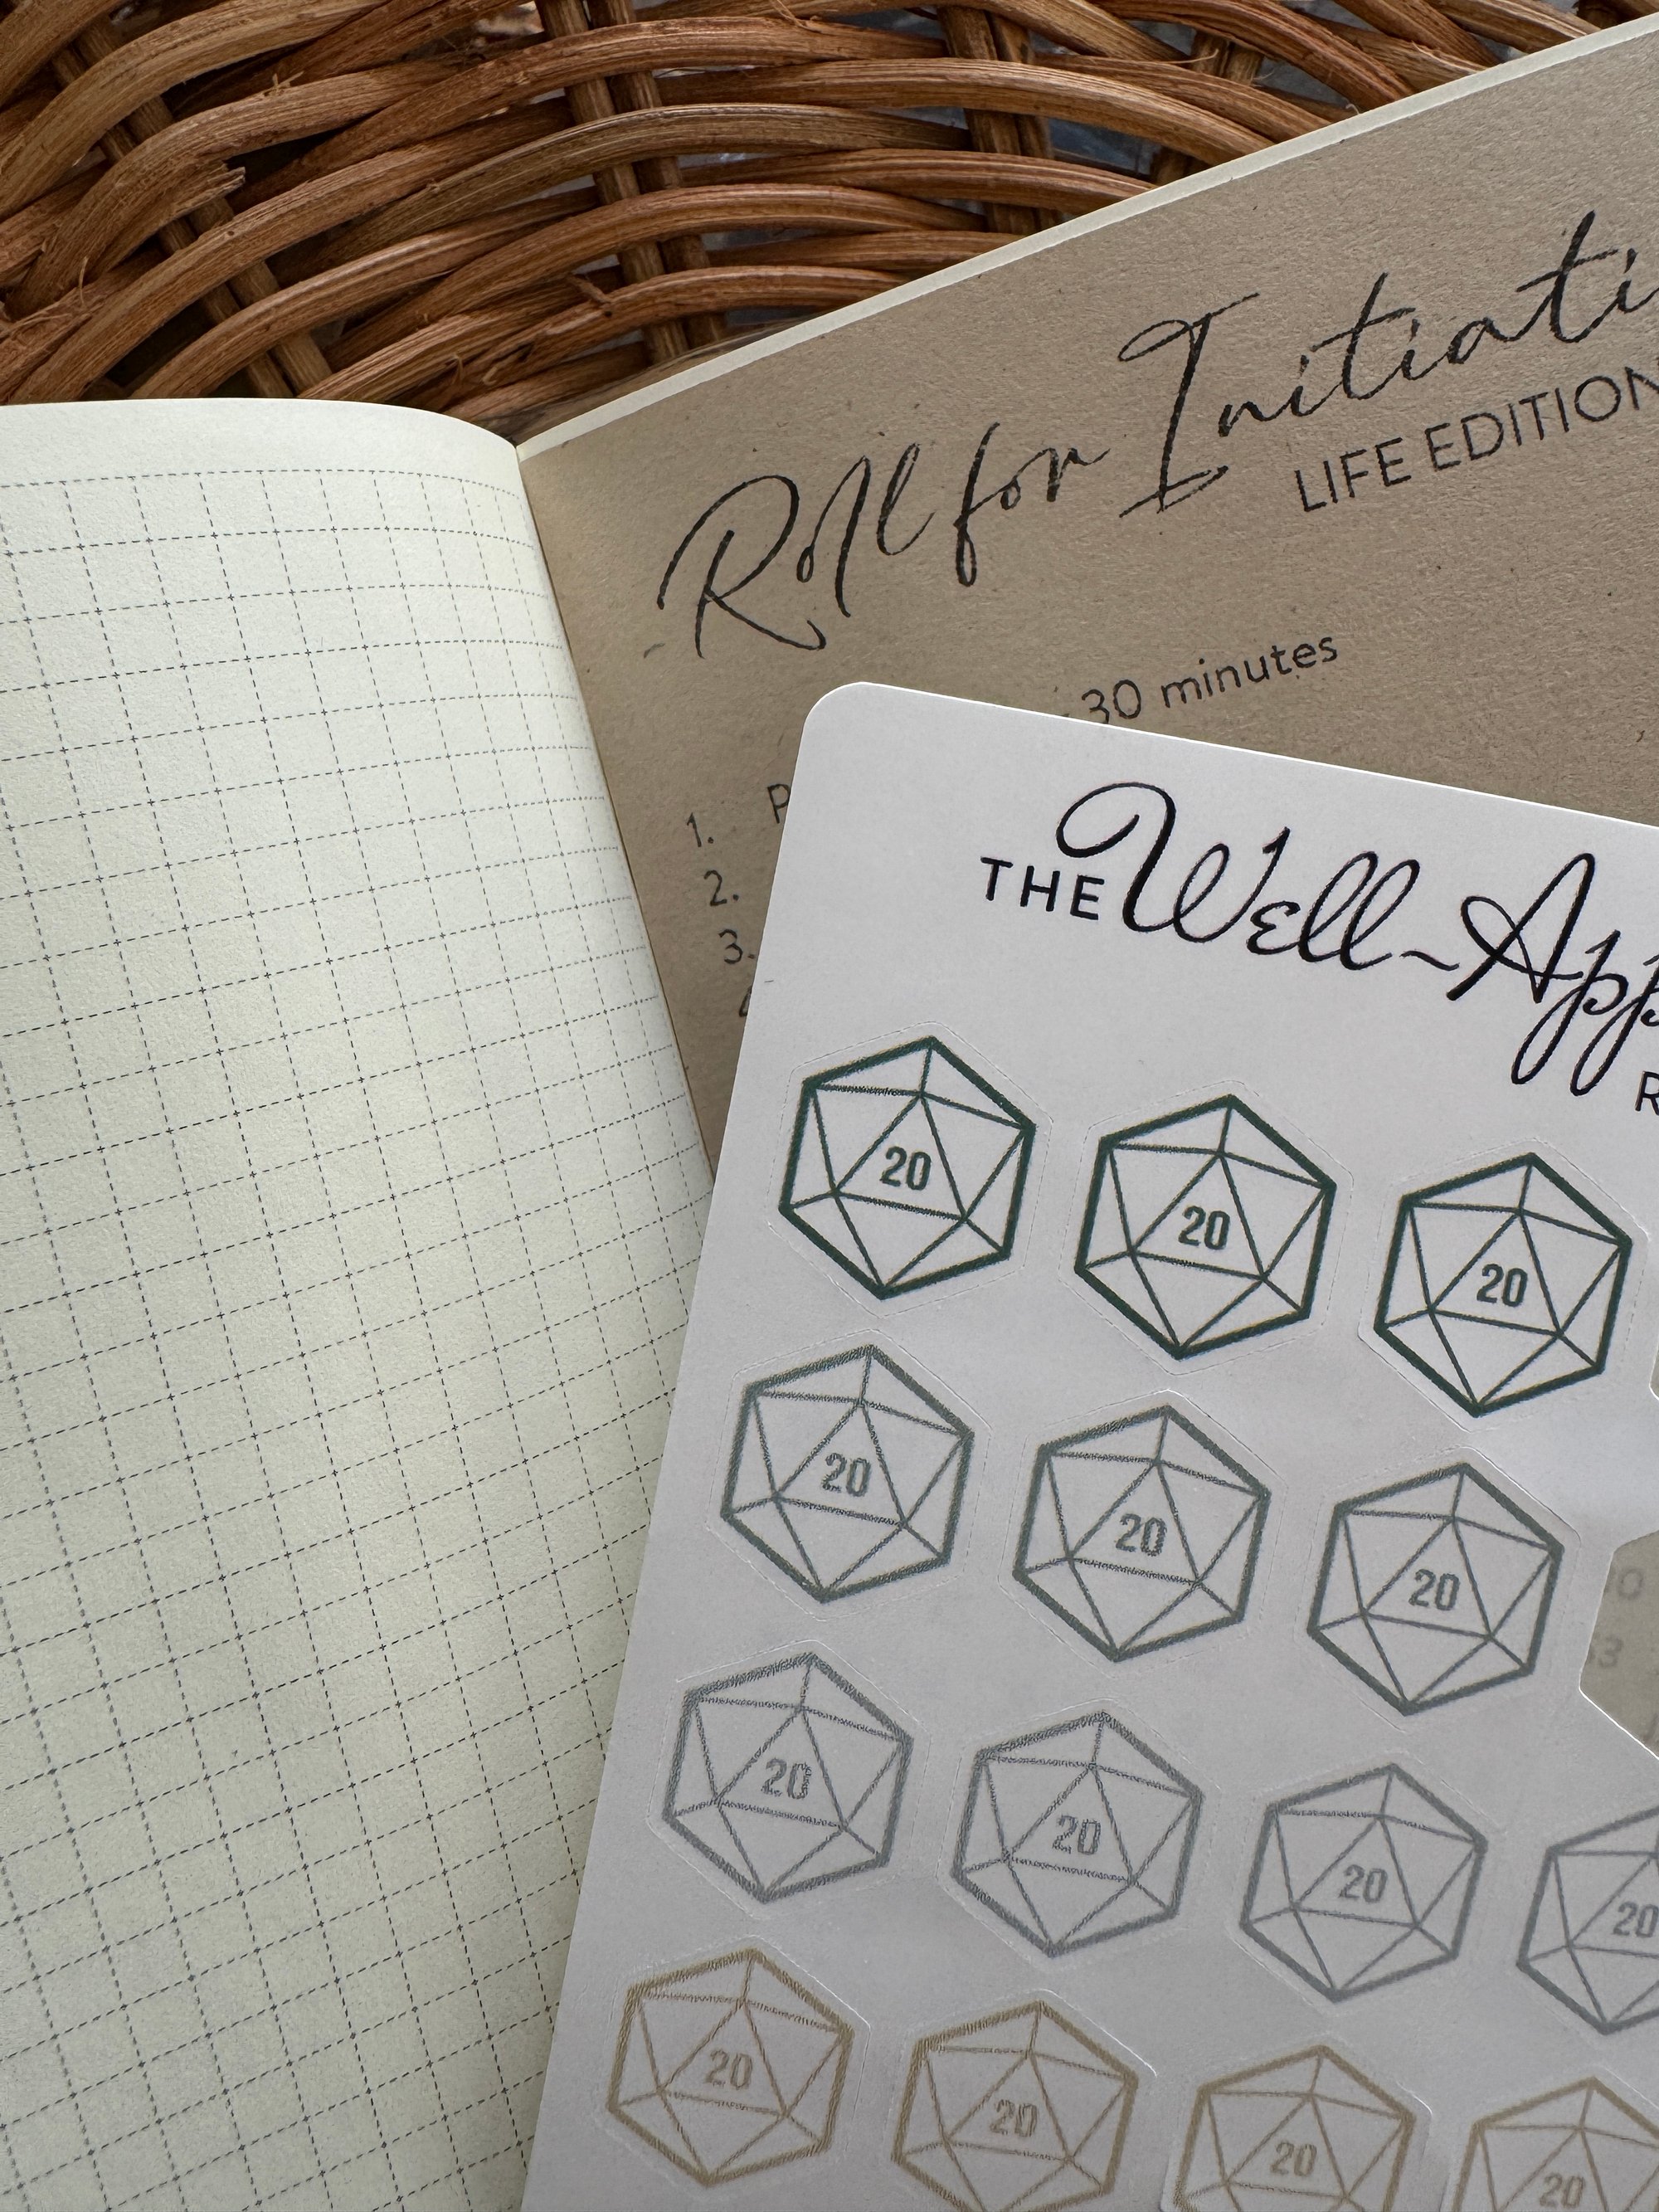 Roll for Initiati
LIFE EDITION
30 minutes
1. P
2.
3.
THE Well-App
R
20 20 20
20 20 20
20 20 20 20
20 20 20 20